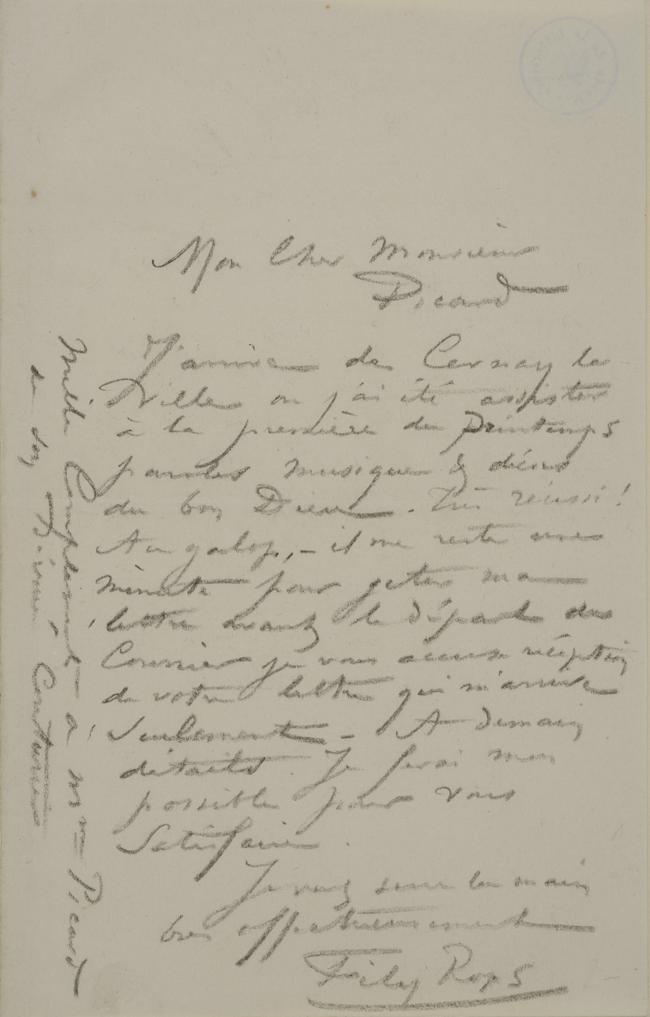 Mon Cher Monsieur
Picard
J'arrive de Cernay la
Ville ou j'ai été assister
à la première du Printemps
paroles musique & décors
du bon Dieu. Très réussi!
Au galop, – il me reste une
minute pour jeter ma
lettre avant le départ du
Courrier je vous accuse réception
de votre lettre qui m'arrive
seulement – A demain
détails. Je ferai mon
possible pour vous
Satisfaire.
Je vous serre la main
bien affectueusement
Fély Rops
Mille Compliments à Mme Picard